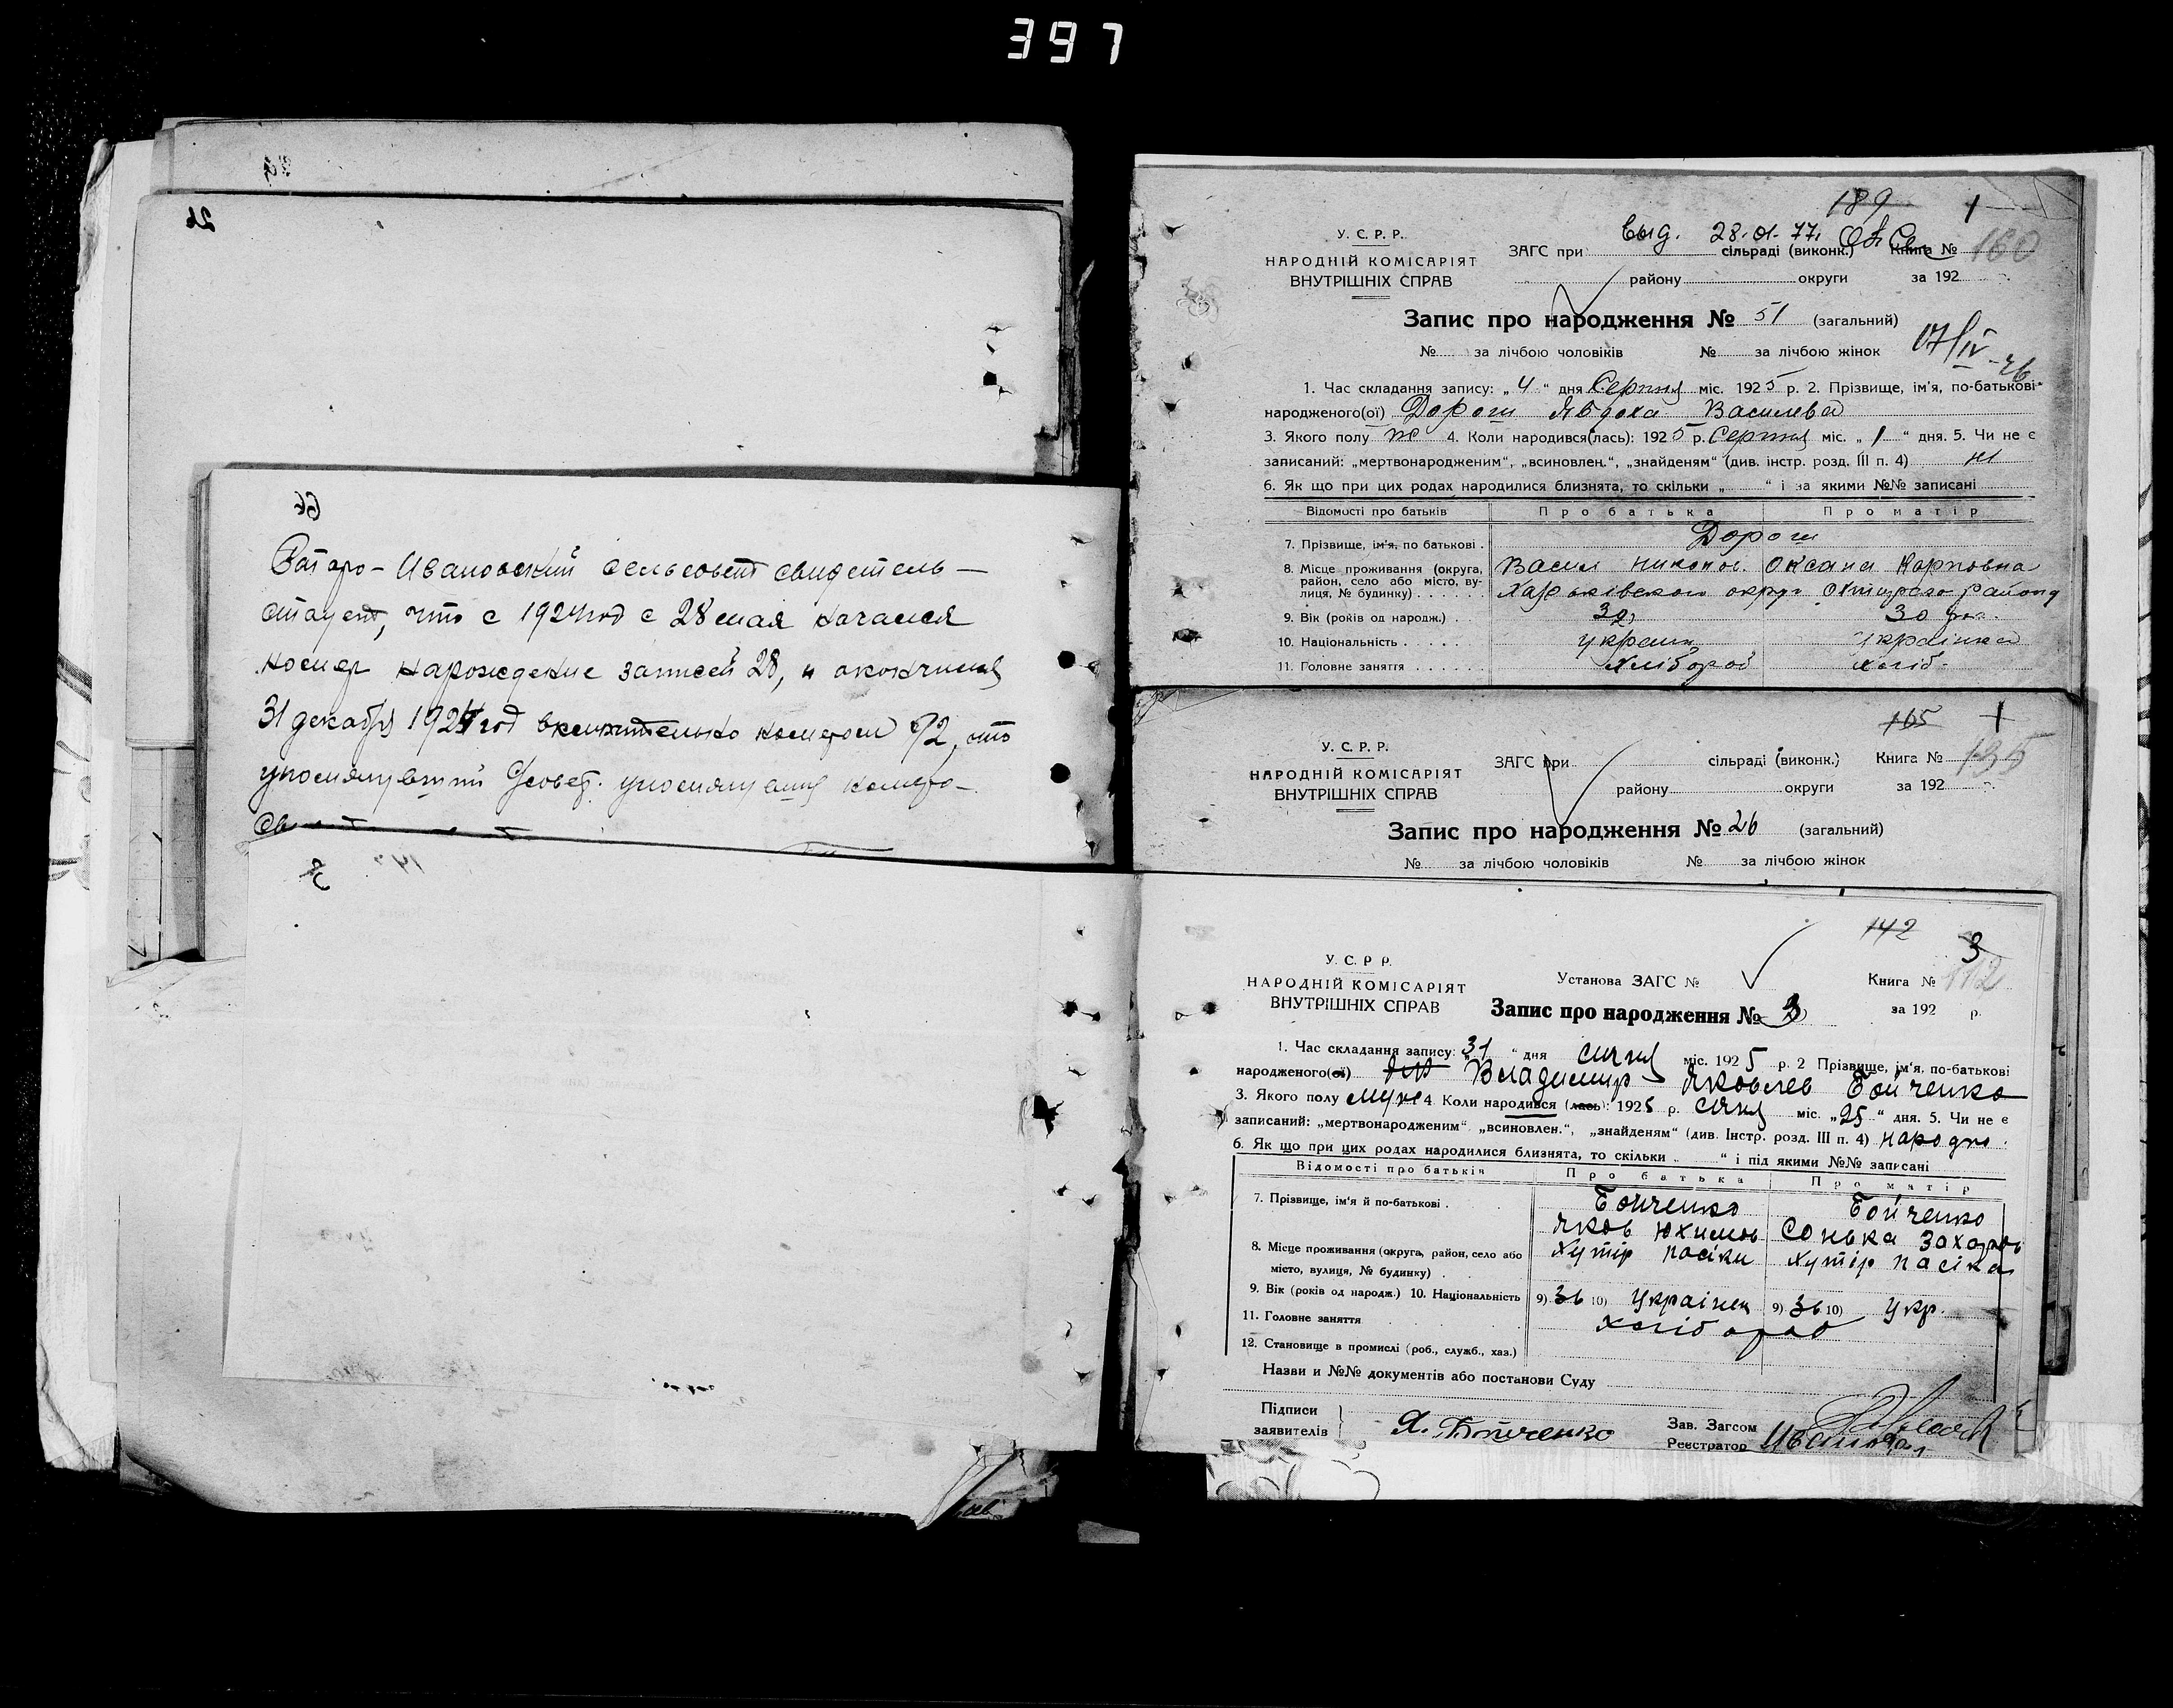 397
26
66
Старо-Ивановский сельсовет свидетель-
ствует, что с 1924 год с 28 мая начался
номер нарождение записей 28, и окончился
31 декабря 1924 год включительно номером 92, что
упомянувший упомянувшия
189 1
У. С. Р. Р.
НАРОДНІЙ КОМІСАРІЯТ
ВНУТРІШНІХ СПРАВ
выд. 28.01.77г.
ЗАГС при сільраді (виконк.) Книга № 180
району округи за 192
Запис про народження № 51 (загальний)
№ за лічбою чоловіків № за лічбою жінок
17/IV-26
1. Час складання запису: „4“ дня Серпня міс. 1925 р. 2. Прізвище, ім'я, по-батькові
народженого(ої) Дорош Явдоха Василева
3. Якого полу ж 4. Коли народився(лась): 1925 р. Серпня міс. „1“ дня. 5. Чи не є
записаний: „мертвонародженим“, „всиновлен.“, „знайденям“ (див. інстр. розд. III п. 4) ні
6. Як що при цих родах народилися близнята, то скільки „ “ і за якими №№ записані
Відомості про батьків Про батька Про матір
7. Прізвище, ім'я, по батькові . Дорош
8. Місце проживання (округа, Васил Никонов. Оксана Карповна
район, село або місто, ву-
лиця, № будинку) . . . . . Харьківского округ Охтирсго району
9. Вік (років од народж.) . . 32 30
10. Національність . . . . . україн українка
11. Головне заняття . . . . . . хлібороб хліб.
165 1
У. С. Р. Р.
НАРОДНІЙ КОМІСАРІЯТ
ВНУТРІШНІХ СПРАВ
ЗАГС при сільраді (виконк.) Книга № 135
району округи за 192
Запис про народження № 26 (загальний)
№ за лічбою чоловіків № за лічбою жінок
142 3
У. С. Р Р.
НАРОДНІЙ КОМІСАРІЯТ
ВНУТРІШНІХ СПРАВ
Установа ЗАГС № Книга № 112
Запис про народження № 3 за 192 р.
1. Час складання запису: „31“ дня січня міс. 1925 р. 2 Прізвище, ім'я, по-батькові
народженого(ої) Владимир Яковлев Бойченко
3. Якого полу муж 4 Коли народився (лась): 1925 р. січня міс. „25“ дня. 5. Чи не є
записаний: „мертвонародженим“ „всиновлен.“, „знайденям“ (див. Інстр. розд. III п. 4) народно.
6. Як що при цих родах народилися близнята, то скільки „ “ і під якими №№ записані
Відомості про батьків Про батька Про матір
7. Прізвище, ім'я й по-батькові . Бойченко Бойченко
Яков Юхимов Сонька Захаров
8. Місце проживання (округа, район, село або хутір пасіки хутір пасіка
місто, вулиця, № будинку) .
9. Вік (років од народж.) 10. Національність 9) 36 10) Українец 9) 36 10) Укр.
11. Головне заняття хлібароб
12. Становище в промислі (роб., служб., хаз.)
Назви и №№ документів або постанови Суду
Підписи
заявителів Я. Бойченко
Зав. Загсом
Реєстратор